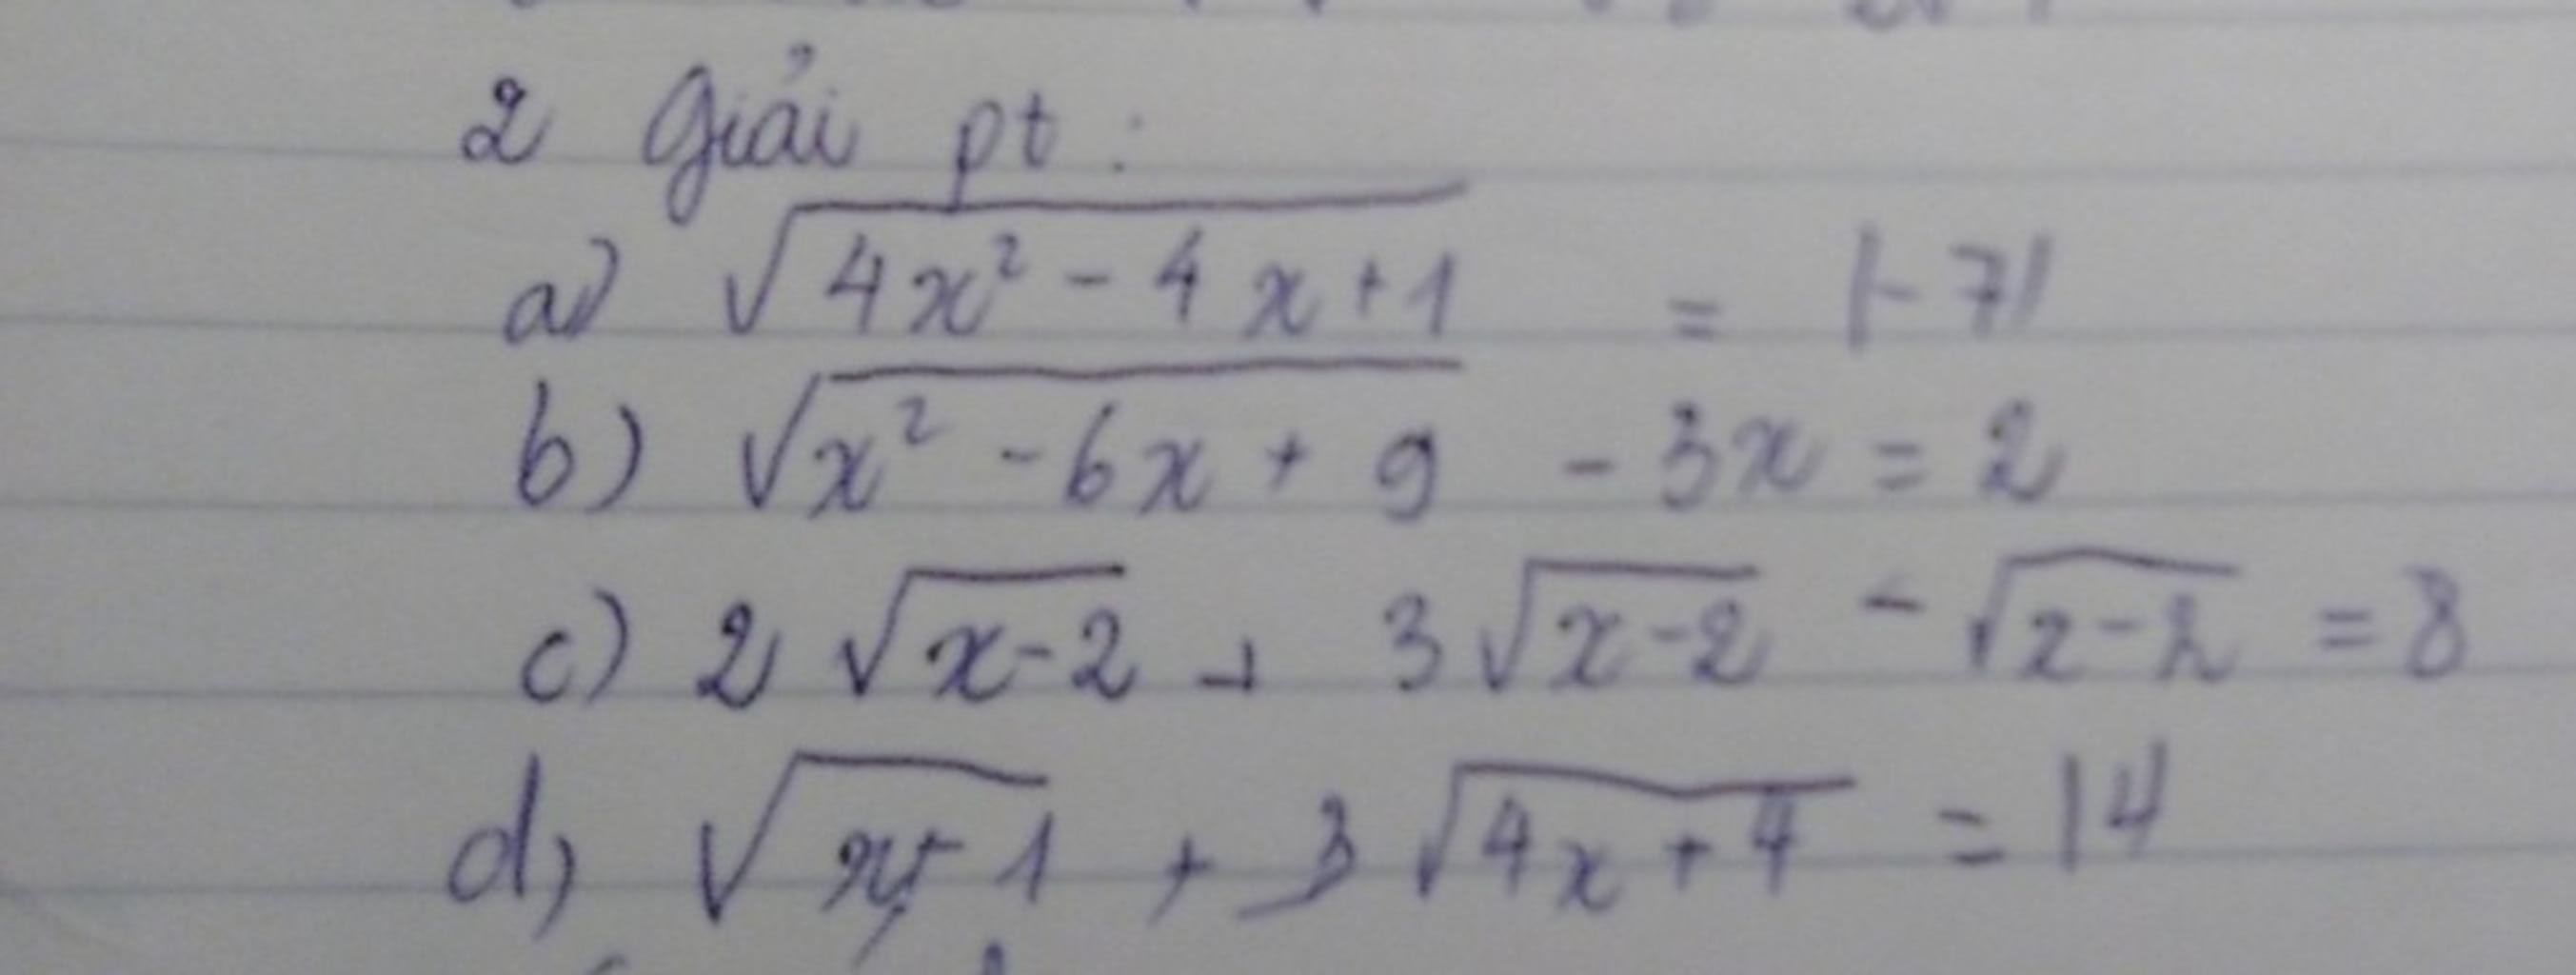 2 Giải pt :
a) √(4x² - 4x + 1) = |-7|
b) √(x² - 6x + 9) - 3x = 2
c) 2√(x-2) + 3√(x-2) - √(x-2) = 8
d) √(x+1) + 3√(4x+4) = 14